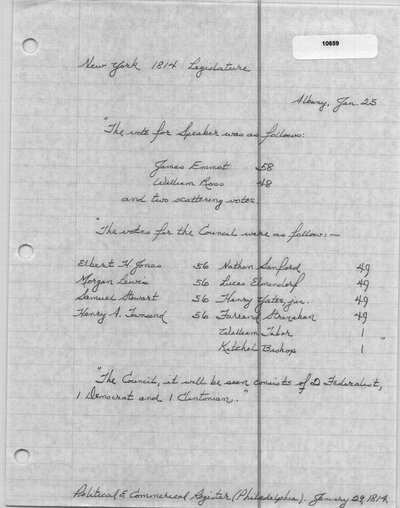 10659
New York 1814 Legislature
Albany, Jan. 25
"The vote for Speaker was as follows:
James Emmot 58
William Ross 48
and two scattering votes.
"The votes for the Council were as follow:—
Elbert H. Jones 56 Nathan Sanford 49
Morgan Lewis 56 Lucas Elmendorf 49
Samuel Stewart 56 Henry Yates, jur. 49
Henry A. Townsend 56 Farrand Stranahan 49
William Tabor 1
Kitchel Bishop 1 "
"The Council, it will be seen consists of 2 Federalist,
1 Democrat and 1 Clintonian."
Political & Commerical Register (Philadelphia). January 29, 1814.